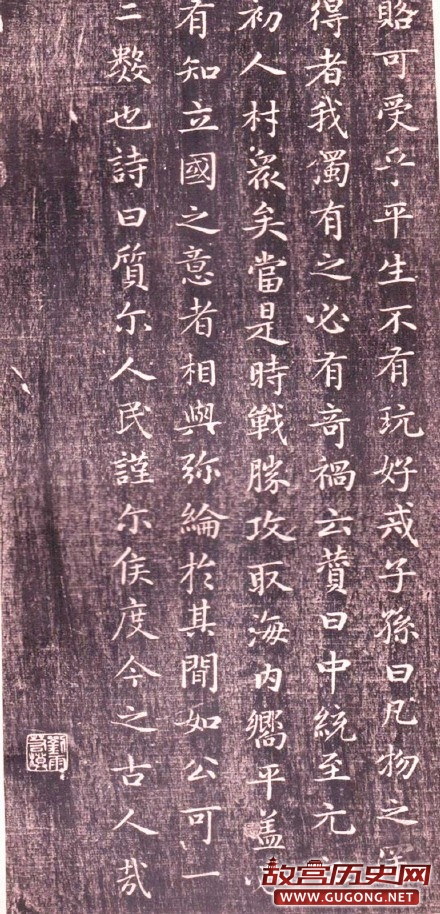 賂可受乎平生不有玩好戒子孫曰凡物之罕
得者我獨有之必有竒禍云賛曰中統至元之
初人材衆矣當是時戰勝攻取海内嚮平盖
有知立國之意者相與弥綸於其間如公可一
二數也詩曰質尔人民謹尔侯度今之古人哉
故宫历史网
WWW.GUGONG.NET